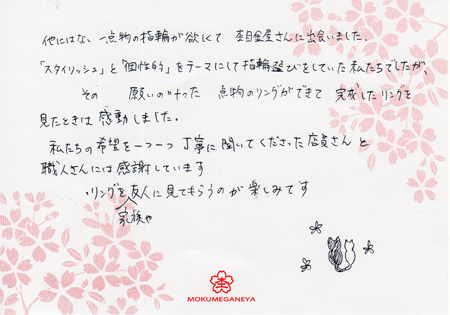 他にはない 一点物の指輪が欲しくて 杢目金屋さんに出会いました。
「スタイリッシュ」と「個性的」をテーマにして指輪選びをしていた私たちでしたが、
その 願いの叶った 一点物のリングができて 完成したリングを
見たときは感動しました。
私たちの希望を一つ一つ 丁寧に聞いてくださった店員さんと
職人さんには感謝しています
リングを友人に見てもらうのが楽しみです
家族や
MOKUMEGANEYA